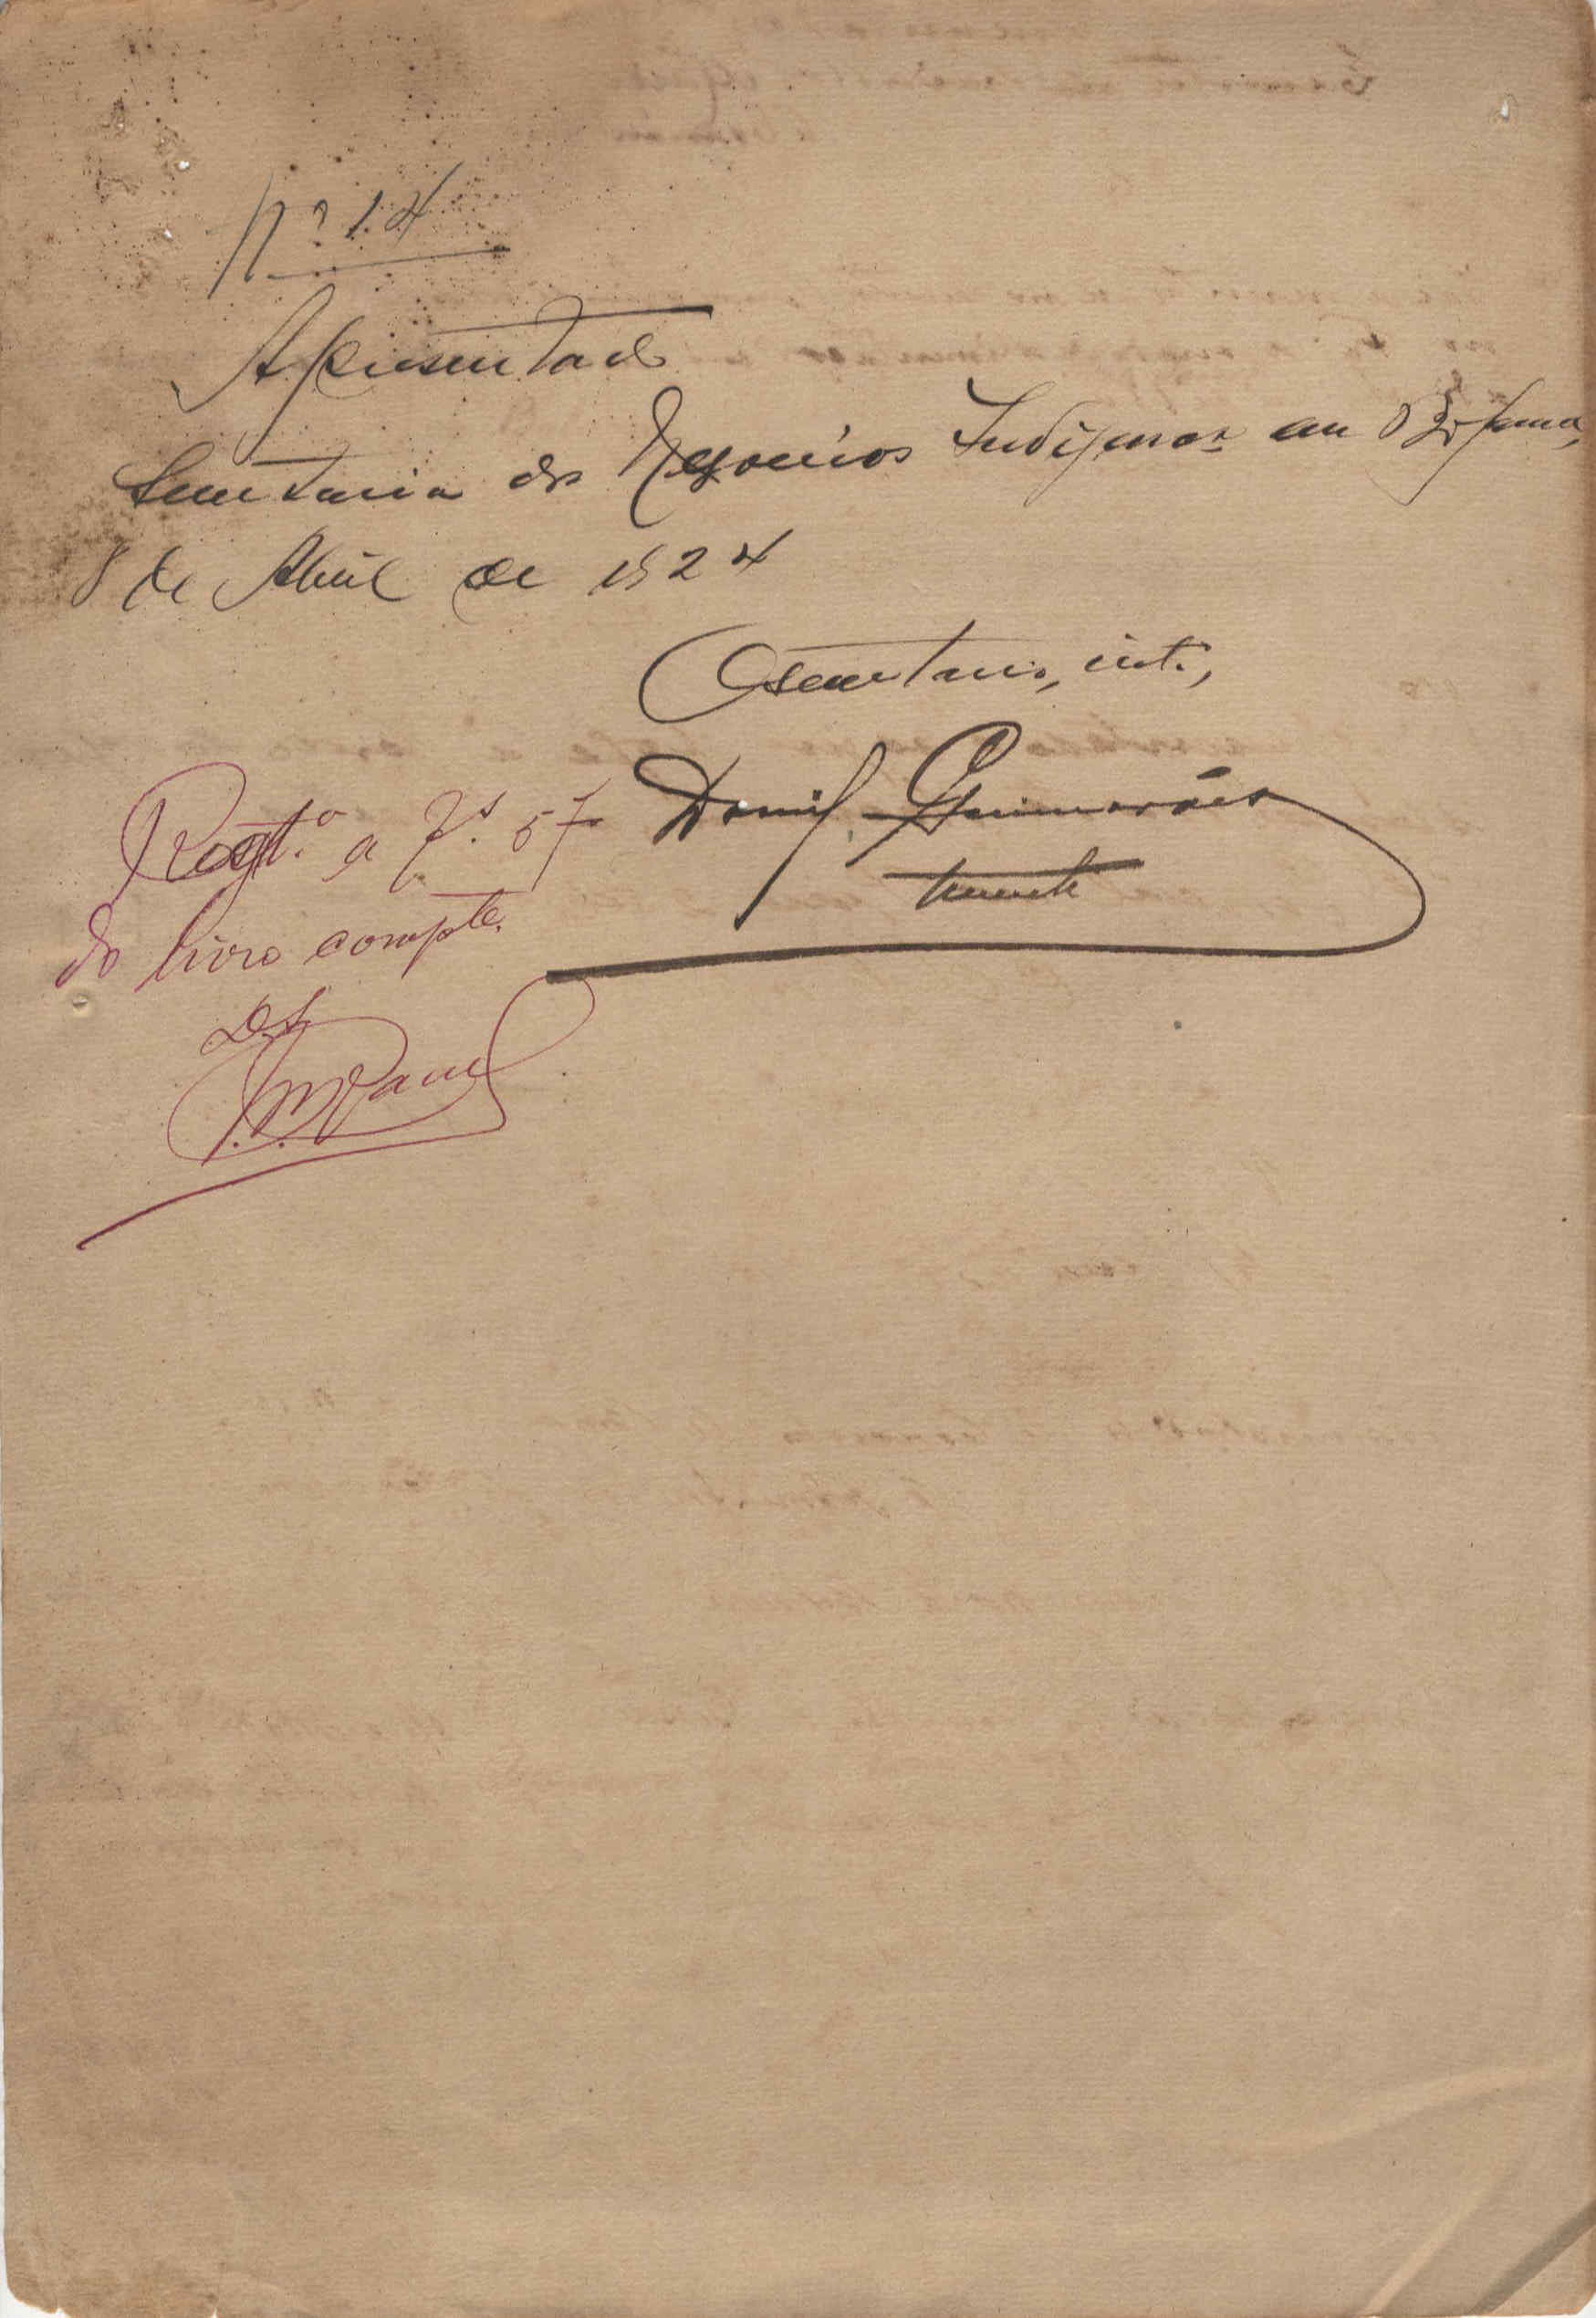 Nº 14
Apresentado
Secretaria dos Negocios Indigenas em Bolama,
8 de Abril de 1924
O secretario, int.,
Daniel Guimarães
tenente
Regt.º a fls. 57
do livro compte.